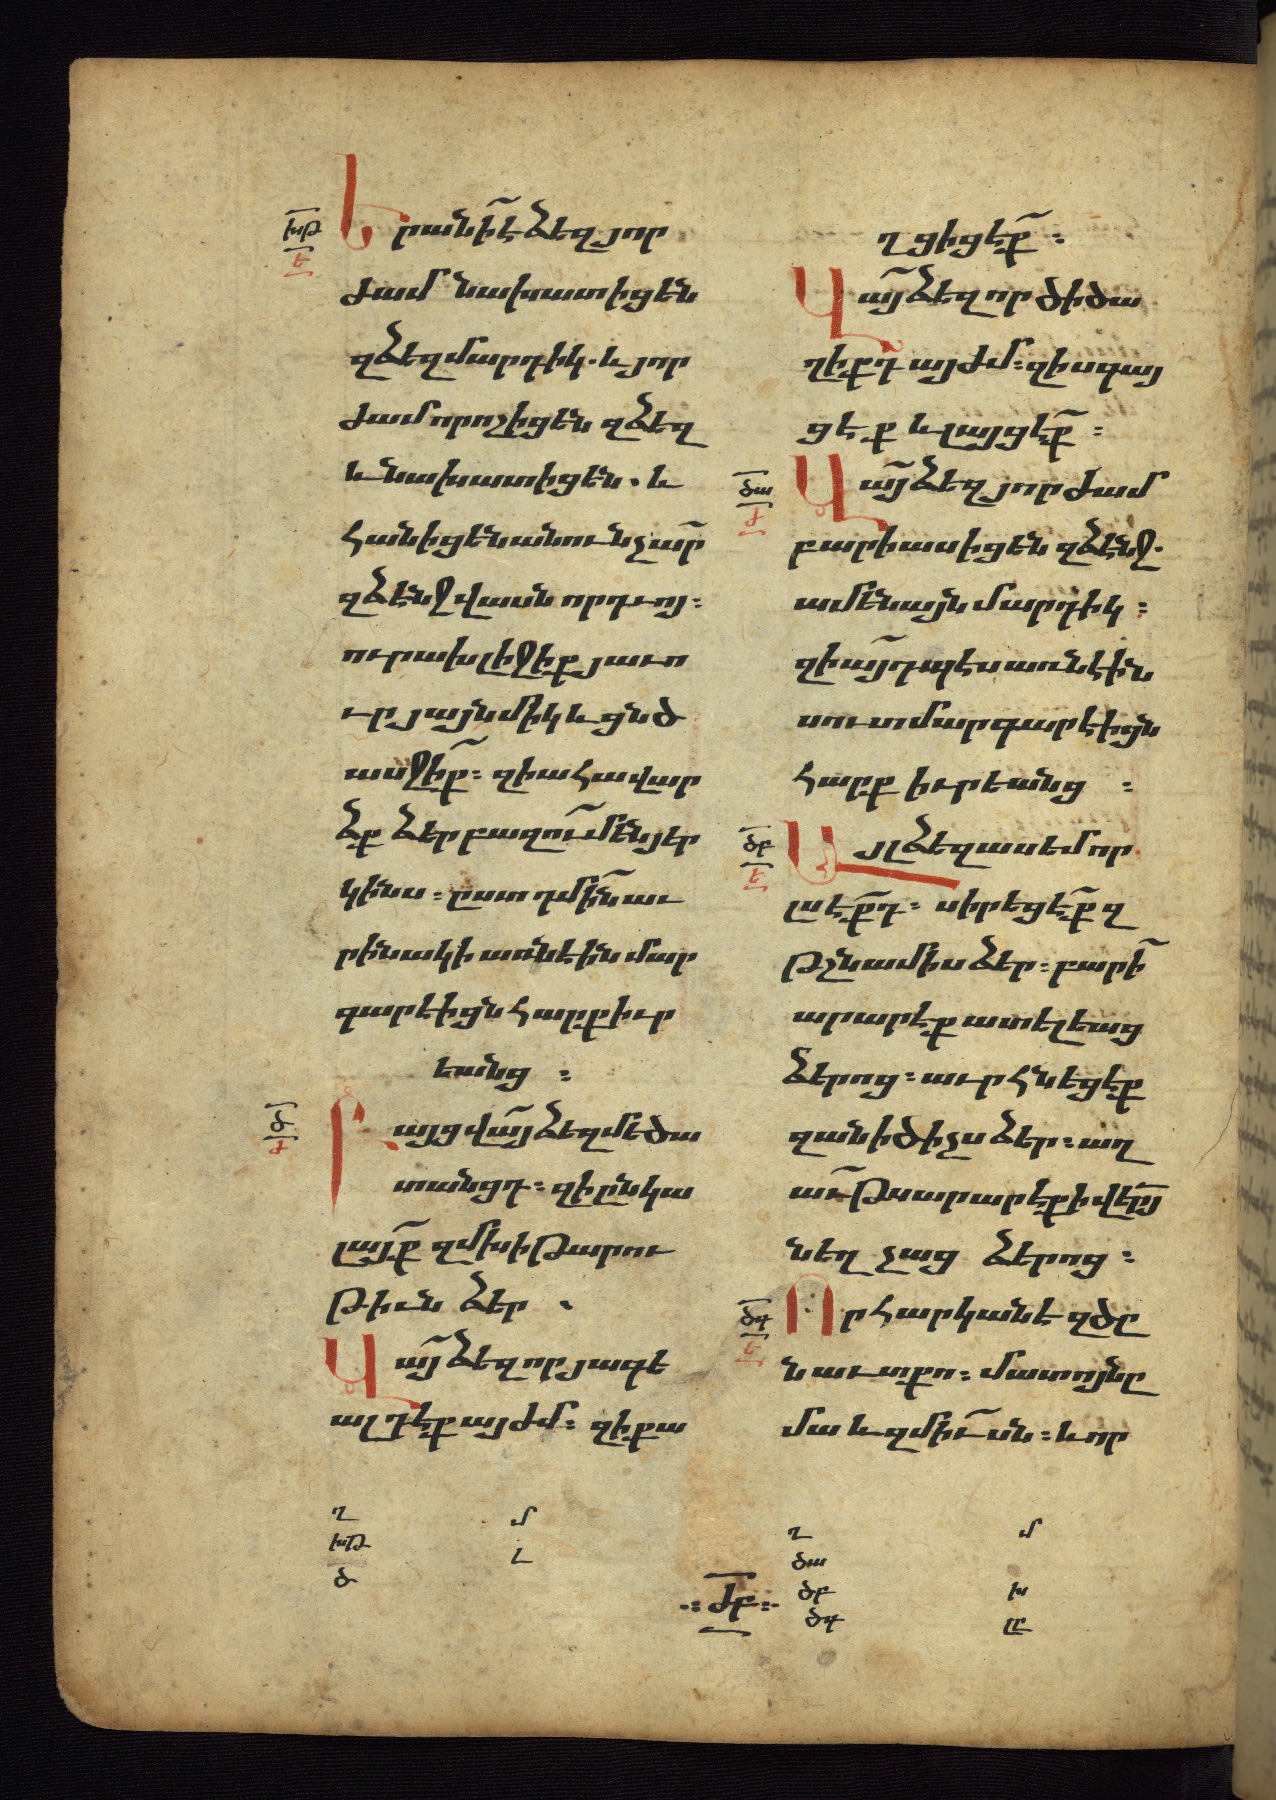 Երանի̃ է ձեզ յոր
ժամ նախատիցեն
զձեզ մարդիկ. և յոր
ժամ որոշիցեն զձեզ
և նախատիցեն. և
հանիցեն անուն չար̃
զձէնջ վասն որդւոյ։
ուրախ լիջիք յաւո
ւր յայնմիկ և ցնծ
ասջիք̃։ զի ահա վար
ձք ձեր բազում̃ են յեր
կինս։ ըստ դմին̃ աւ
րինակի առնէին մար
գարէիցն հարքիւր
եանց։
Բայց վայ̃ ձեզ մեծա
տանցդ։ զի ընկա
լայք̃ զմխիթարու
թիւն ձեր.
Վայ̃ ձեզ որ յագե
ալ դէք այժմ։ զի քա
ղցիցէք̃։
Վայ̃ ձեզ որ ծիծա
ղիքդ այժմ։ զի սգայ
ցէք և լայցէք̃։
Վայ̃ ձեզ յորժամ
բարիասիցեն զձէնջ.
ամենայն մարդիկ։
զի այ̃դպէս առնէին
սուտ մարգարէիցն
հարք իւրեանց։
Այլ ձեզ ասեմ որ
լսէք̃դ։ սիրեցէք̃ զ
թշնամիս ձեր։ բարի̃
արարէք ատելեաց
ձերոց։ աւրհնեցէք
զանիծիչս ձեր։ աղ
աւ̃թս արարէք ի վեր̃այ
նեղչաց ձերոց։
Որ հարկանէ զծը
նաւտ քո։ մատոյ նը
մա և զմիւ̃սն։ և որ
խթ
ե
ծ
ժ
ծա
ժ
ծբ
ե
ծդ
ե
ղ մ
խթ լ
ծ
ժբ
ղ մ
ծա
ծբ խ
ծդ լը